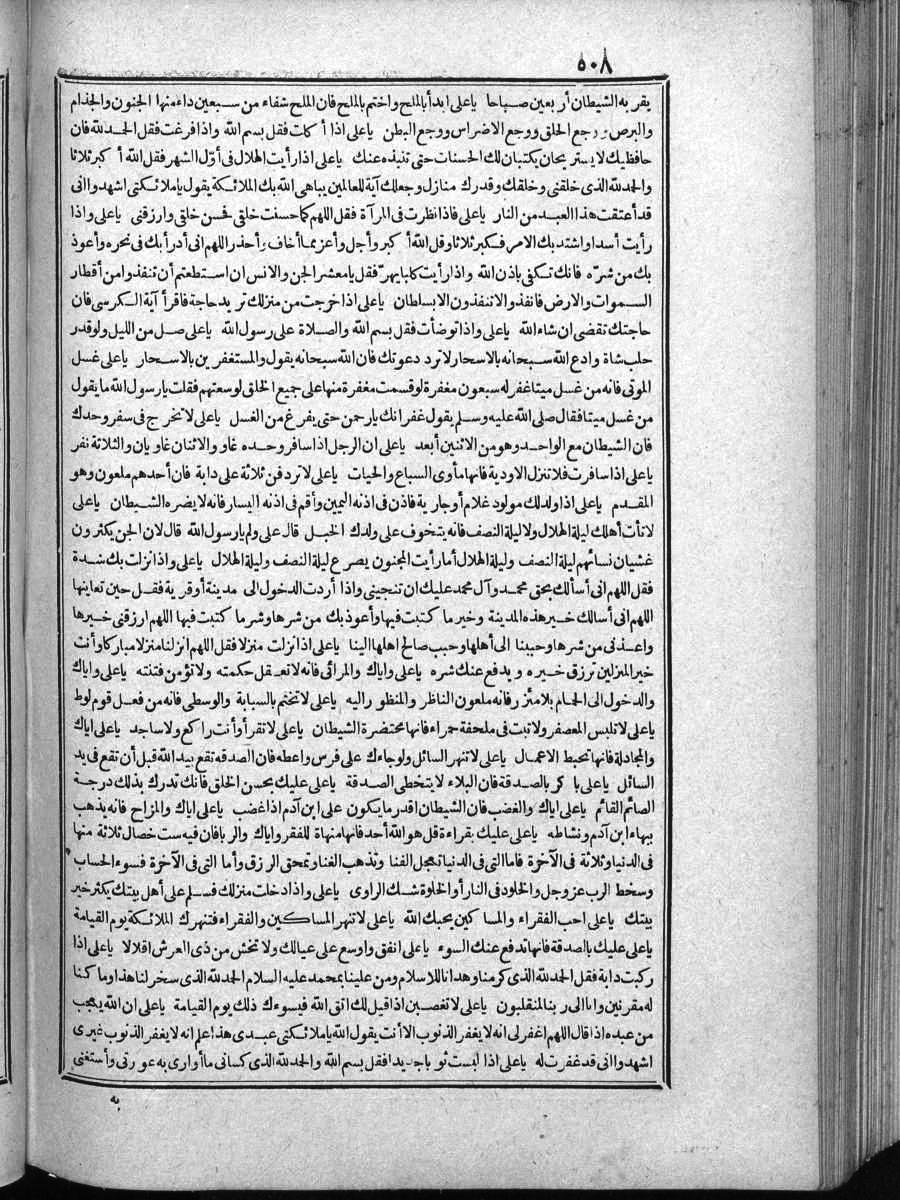 ٥٠٨
يقربه الشيطان أربعين صباحا ياعلى ابدأ بالملح واختم بالملح فان الملح شفاء من سبعين داء منها الجنون والجذام
والبرص ووجع الحلق ووجع الاضراس ووجع البطن ياعلى اذا أكلت فقل بسم الله واذا فرغت فقل الحمد لله فان
حافظيك لا يستريحان يكتبان لك الحسنات حتى تنبذه عنك ياعلى اذا رأيت الهلال فى أول الشهر فقل الله أكبر ثلاثا
والحمد لله الذى خلقنى وخلقك وقدرك منازل وجعلك آية للعالمين يباهى الله بك الملائكة يقول ياملائكتى اشهدوا انى
قد أعتقت هذا العبد من النار ياعلى فاذا نظرت فى المرآة فقل اللهم كما حسنت خلقى فحسن خلقى وارزقنى ياعلى واذا
رأيت أسدا واشتد بك الامر فكبر ثلاثا وقل الله أكبر وأجل وأعز مما أخاف وأحذر اللهم انى أدرأ بك فى نحره وأعوذ
بك من شره فانك تكفى باذن الله واذا رأيت كلبا يهر فقل يامعشر الجن والانس ان استطعتم أن تنفذوا من أقطار
السموات والارض فانفذوا لاتنفذون الابسلطان ياعلى اذا خرجت من منزلك تريد حاجة فاقرأ آية الكرسى فان
حاجتك تقضى ان شاء الله ياعلى واذا توضأت فقل بسم الله والصلاة على رسول الله ياعلى صل من الليل ولو قدر
حلب شاة وادع الله سبحانه بالاسحار لا ترد دعوتك فان الله سبحانه يقول والمستغفرين بالاسحار ياعلى غسل
الموتى فانه من غسل ميتا غفر له سبعون مغفرة لو قسمت مغفرة منها على جميع الخلق لوسعتهم فقلت يارسول الله ما يقول
من غسل ميتا فقال صلى الله عليه وسلم يقول غفرانك يارحمن حتى يفرغ من الغسل ياعلى لا تخرج فى سفر وحدك
فان الشيطان مع الواحد وهو من الاثنين أبعد ياعلى ان الرجل اذا سافر وحده غاو والاثنان غاويان والثلاثة نفر
ياعلى اذا سافرت فلا تنزل الاودية فانها مأوى السباع والحيات ياعلى لا تردفن ثلاثة على دابة فان أحدهم ملعون وهو
المقدم ياعلى اذا ولد لك مولود غلام أوجارية فاذن فى اذنه اليمين وأقم فى اذنه اليسار فانه لا يضره الشيطان ياعلى
لا تأت أهلك ليلة الهلال ولا ليلة النصف فانه يتخوف على ولدك الخبل قال على ولم يارسول الله قال لان الجن يكثرون
غشيان نسائهم ليلة النصف وليلة الهلال أما رأيت المجنون يصرع ليلة النصف وليلة الهلال ياعلى واذا نزلت بك شدة
فقل اللهم انى أسألك بحق محمد وآل محمد عليك ان تنجينى واذا أردت الدخول الى مدينة أو قرية فقل حين تعاينها
اللهم انى أسالك خير هذه المدينة وخير ما كتبت فيها وأعوذ بك من شرها وشر ما كتبت فيها اللهم ارزقنى خيرها
واعذنى من شرها وحببنا الى أهلها وحبب صالح اهلها الينا ياعلى اذا نزلت منزلا فقل اللهم انزلنا منزلا مباركا وأنت
خير المنزلين ترزق خيره ويدفع عنك شره ياعلى واياك والمرائى فانه لا تعقل حكمته ولا تؤمن فتنته ياعلى واياك
والدخول الى الحمام بلا مئزر فانه ملعون الناظر والمنظور اليه ياعلى لا تختم بالسبابة والوسطى فانه من فعل قوم لوط
ياعلى لا تلبس المعصفر ولا تبت فى ملحفة حمراء فانها محتضرة الشيطان ياعلى لا تقرأ وأنت راكع ولا ساجد ياعلى اياك
والمجادلة فانها تحبط الاعمال ياعلى لا تنهر السائل ولو جاءك على فرس واعطه فان الصدقه تقع بيد الله قبل أن تقع فى يد
السائل ياعلى باكر بالصدقة فان البلاء لا يتخطى الصدقة ياعلى عليك بحسن الخلق فانك تدرك بذلك درجة
الصائم القائم ياعلى اياك والغضب فان الشيطان اقدر ما يكون على ابن آدم اذا غضب ياعلى اياك والمزاح فانه يذهب
ببهاء ابن آدم ونشاطه ياعلى عليك بقراءة قل هو الله أحد فانها منهاة للفقر واياك والربا فان فيه ست خصال ثلاثة منها
فى الدنيا وثلاثة فى الآخرة فاما التى فى الدنيا تعجل الفنا وتذهب الغنا وتمحق الرزق وأما التى فى الآخرة فسوء الحساب
وسخط الرب عز وجل والخلود فى النار أو الخلوة شك الراوى ياعلى واذا دخلت منزلك فسلم على أهل بيتك يكثر خير
بيتك ياعلى احب الفقراء والمساكين يحبك الله ياعلى لا تنهر المساكين والفقراء فتنهرك الملائكة يوم القيامة
ياعلى عليك بالصدقة فانها تدفع عنك السوء ياعلى انفق واوسع على عيالك ولا تخش من ذى العرش اقلالا ياعلى اذا
ركبت دابة فقل الحمد لله الذى كرمنا وهدانا للاسلام ومن علينا بمحمد عليه السلام الحمد لله الذى سخر لنا هذا وما كنا
له مقرنين وانا الى ربنا لمنقلبون ياعلى لا تغضبن اذا قيل لك اتق الله فيسوءك ذلك يوم القيامة ياعلى ان الله يعجب
من عبده اذا قال اللهم اغفر لى انه لا يغفر الذنوب الا أنت يقول الله ياملائكتى عبدى هذا علم انه لا يغفر الذنوب غيرى
اشهدوا انى قد غفرت له ياعلى اذا لبست ثوبا جديدا فقل بسم الله والحمد لله الذى كسانى ما أوارى به عورتى وأستغنى
به